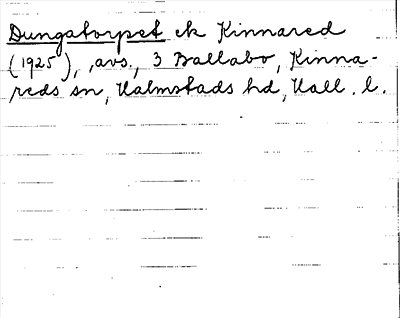 Dungatorpet ek Kinnared
(1925), avs., 3 Ballabo, Kinna-
reds sn, Halmstads hd, Hall. l.